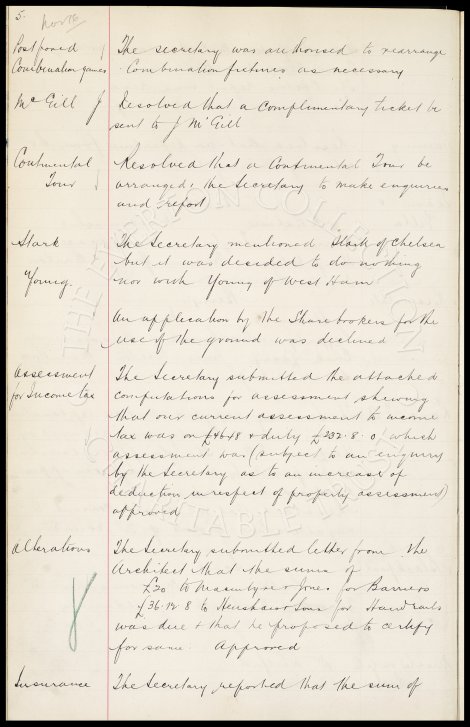 5.
Nov 16
Postponed The secretary was authorised to rearrange
Combination games Combination fixtures as necessary
McGill J Resolved that a complimentary ticket be
sent to J McGill
Continental Resolved that a Continental Tour be
Tour arranged; the Secretary to make enquiries
and report
Stark The Secretary mentioned Stark of Chelsea
but it was decided to do nothing
Young nor with Young of West Ham
An application by the Sharebrokers for the
use of the ground was declined
Assessment The Secretary submitted the attached
for Income tax computations for assessment shewing
that our current assessment to income
tax was on £4648 & duty £232.8.0, which
assessment was (subject to an enquiry
by the Secretary as to an increase of
deduction in respect of property assessment)
approved
Alterations The Secretary submitted letter from the
Architect that the sums of
£20 to & Jones for Barriers
£36.12.8 to Henshaw & Sons for Handrails
was due & that he proposed to certify
for same. Approved
Insurance The Secretary reported that the sum of
THE EVERTON COLLECTION
CHARITABLE TRUST
©